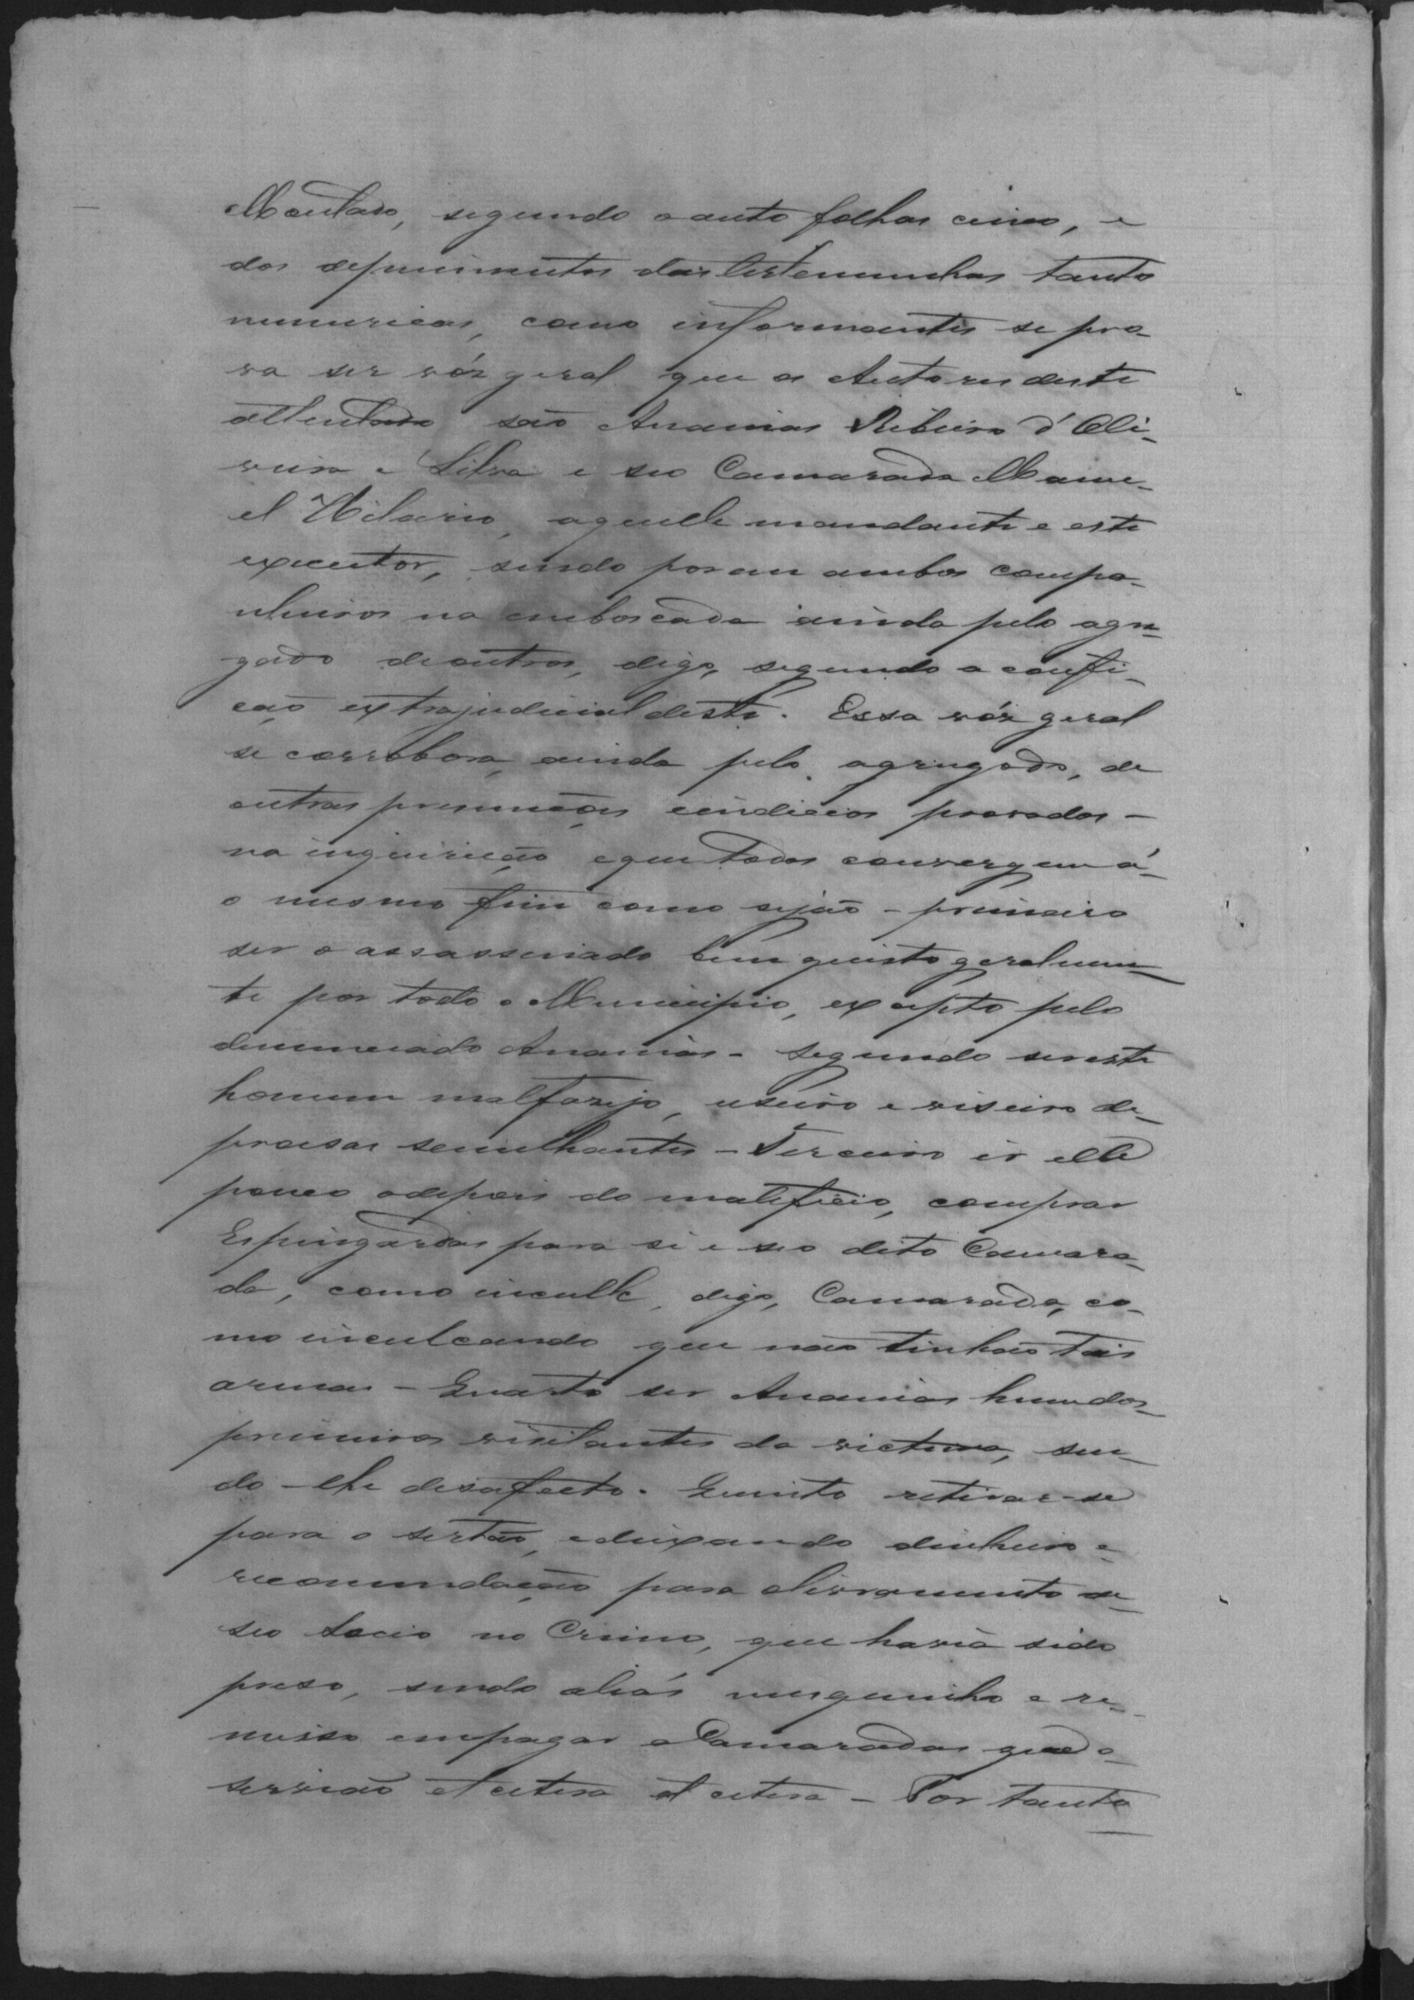 segundo o auto folhas cinco, e
dos depuimentos das testemunhas tanto
numericas, como informantes se pro-
va ser vóz geral que os Autores deste
attentado são Ananias Ribeiro d'Oli-
veira e Silva e seo Camarada Mano-
el Hilario, aquelle mandante e este
executor, sendo porem ambos compa-
nheiros na emboscada ainda pelo agre-
gado de outras, digo, segundo a confi-
ção extrajudicial deste. Essa vóz geral
se corrobora ainda pelo agregado, de
outras presunções e indicios provados -
na inquirição e que todos convergem á-
o mesmo fim como sejão - primeiro
ser o assassinado bem quisto geralmen-
te por todo o Municipio, excepto pelo
denunciado Ananias - segundo ser este
homem malfasejo, useiro e viseiro de-
proesas semilhantes - Terceiro ir elle
pouco adepois do maleficio, comprar
Espingardas para si e seo dito Camara-
da, como inculc, digo, Camarada, co-
mo inculcando que não tinhão tais
armas - Quarto ser Ananias hum dos-
primeiros visitantes da victima, sen-
do-lhe desafecto. Quinto retirar-se
para o sertão, e deixando dinheiro e-
recomendação para olivramento de-
seo Socio no Crime, que havia sido
preso, sendo aliás mesquinho e re-
misso em pagar a Camaradas que o-
servião et cetera et cetera - Por tanto